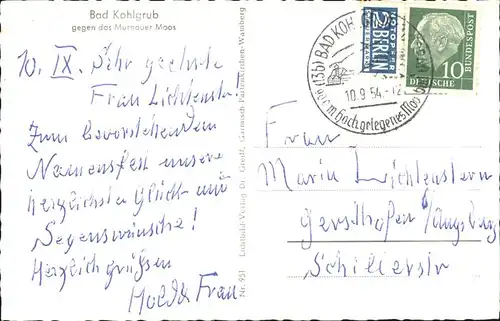 Bad Kohlgrub
gegen das Murnauer Moos
10. IX. Sehr geehrte
Frau Lichtenstern!
Zum bevorstehenden
Namensfest unsere
herzlichsten Glück- und
Segenswünsche!
Herzlich grüßen
u. Frau
Nr. 951
Lichtbild-Verlag Dr. Garmisch-Partenkirchen-Wamberg
(13b) BAD KOH
900 m hoch gelegenes Moo
10.9.54-12
NOTOPFER
2 BERLIN
STEUERMARKE
DEUTSCHE
BUNDESPOST
10
Frau
Maria Lichtenstern
Gersthofen b/Augsburg
Schillerstr